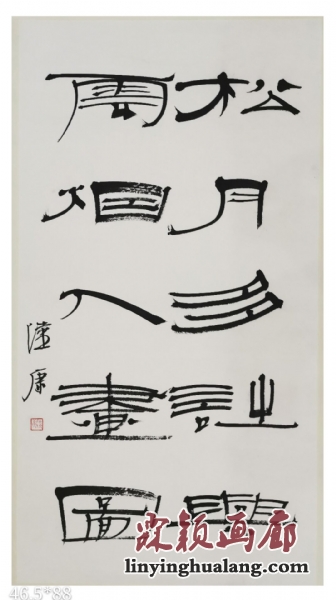 松月多詩興
雲烟入畫圖
陸康
霖颖画廊
linyinghualang.com
46.5*88